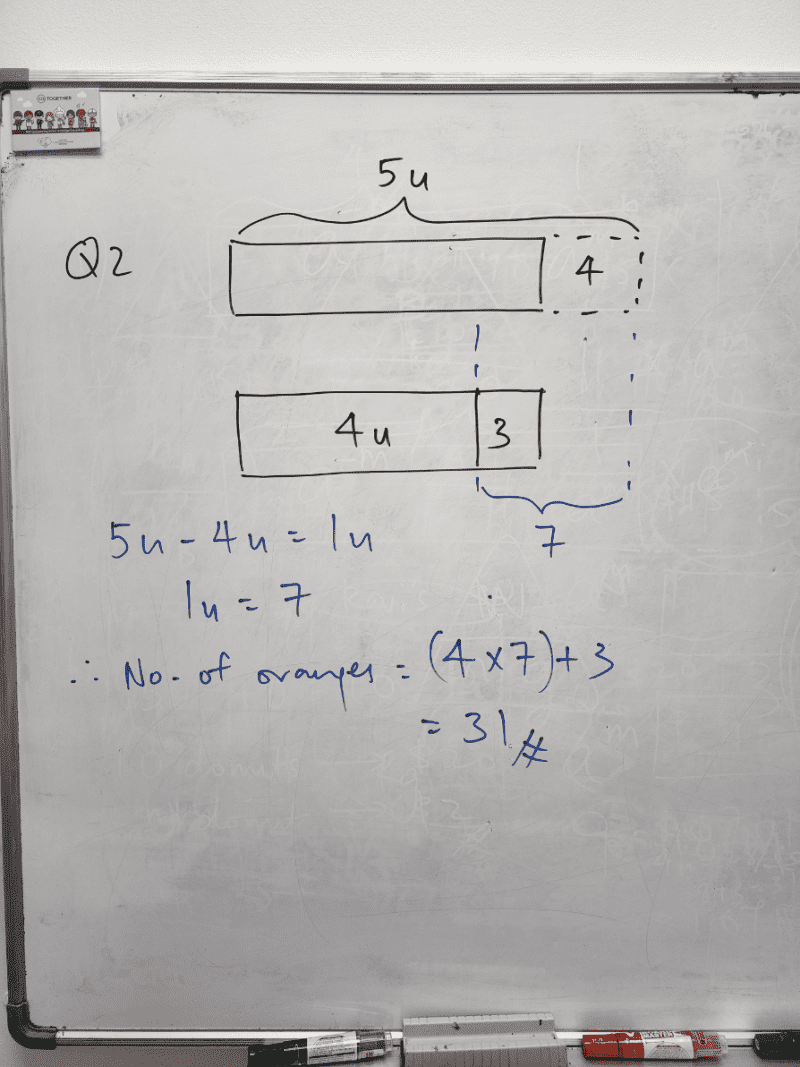 TOGETHER
5u
Q2
4
4u
3
7
5u - 4u = 1u
1u = 7
∴ No. of oranges = (4 x 7) + 3
= 31 #